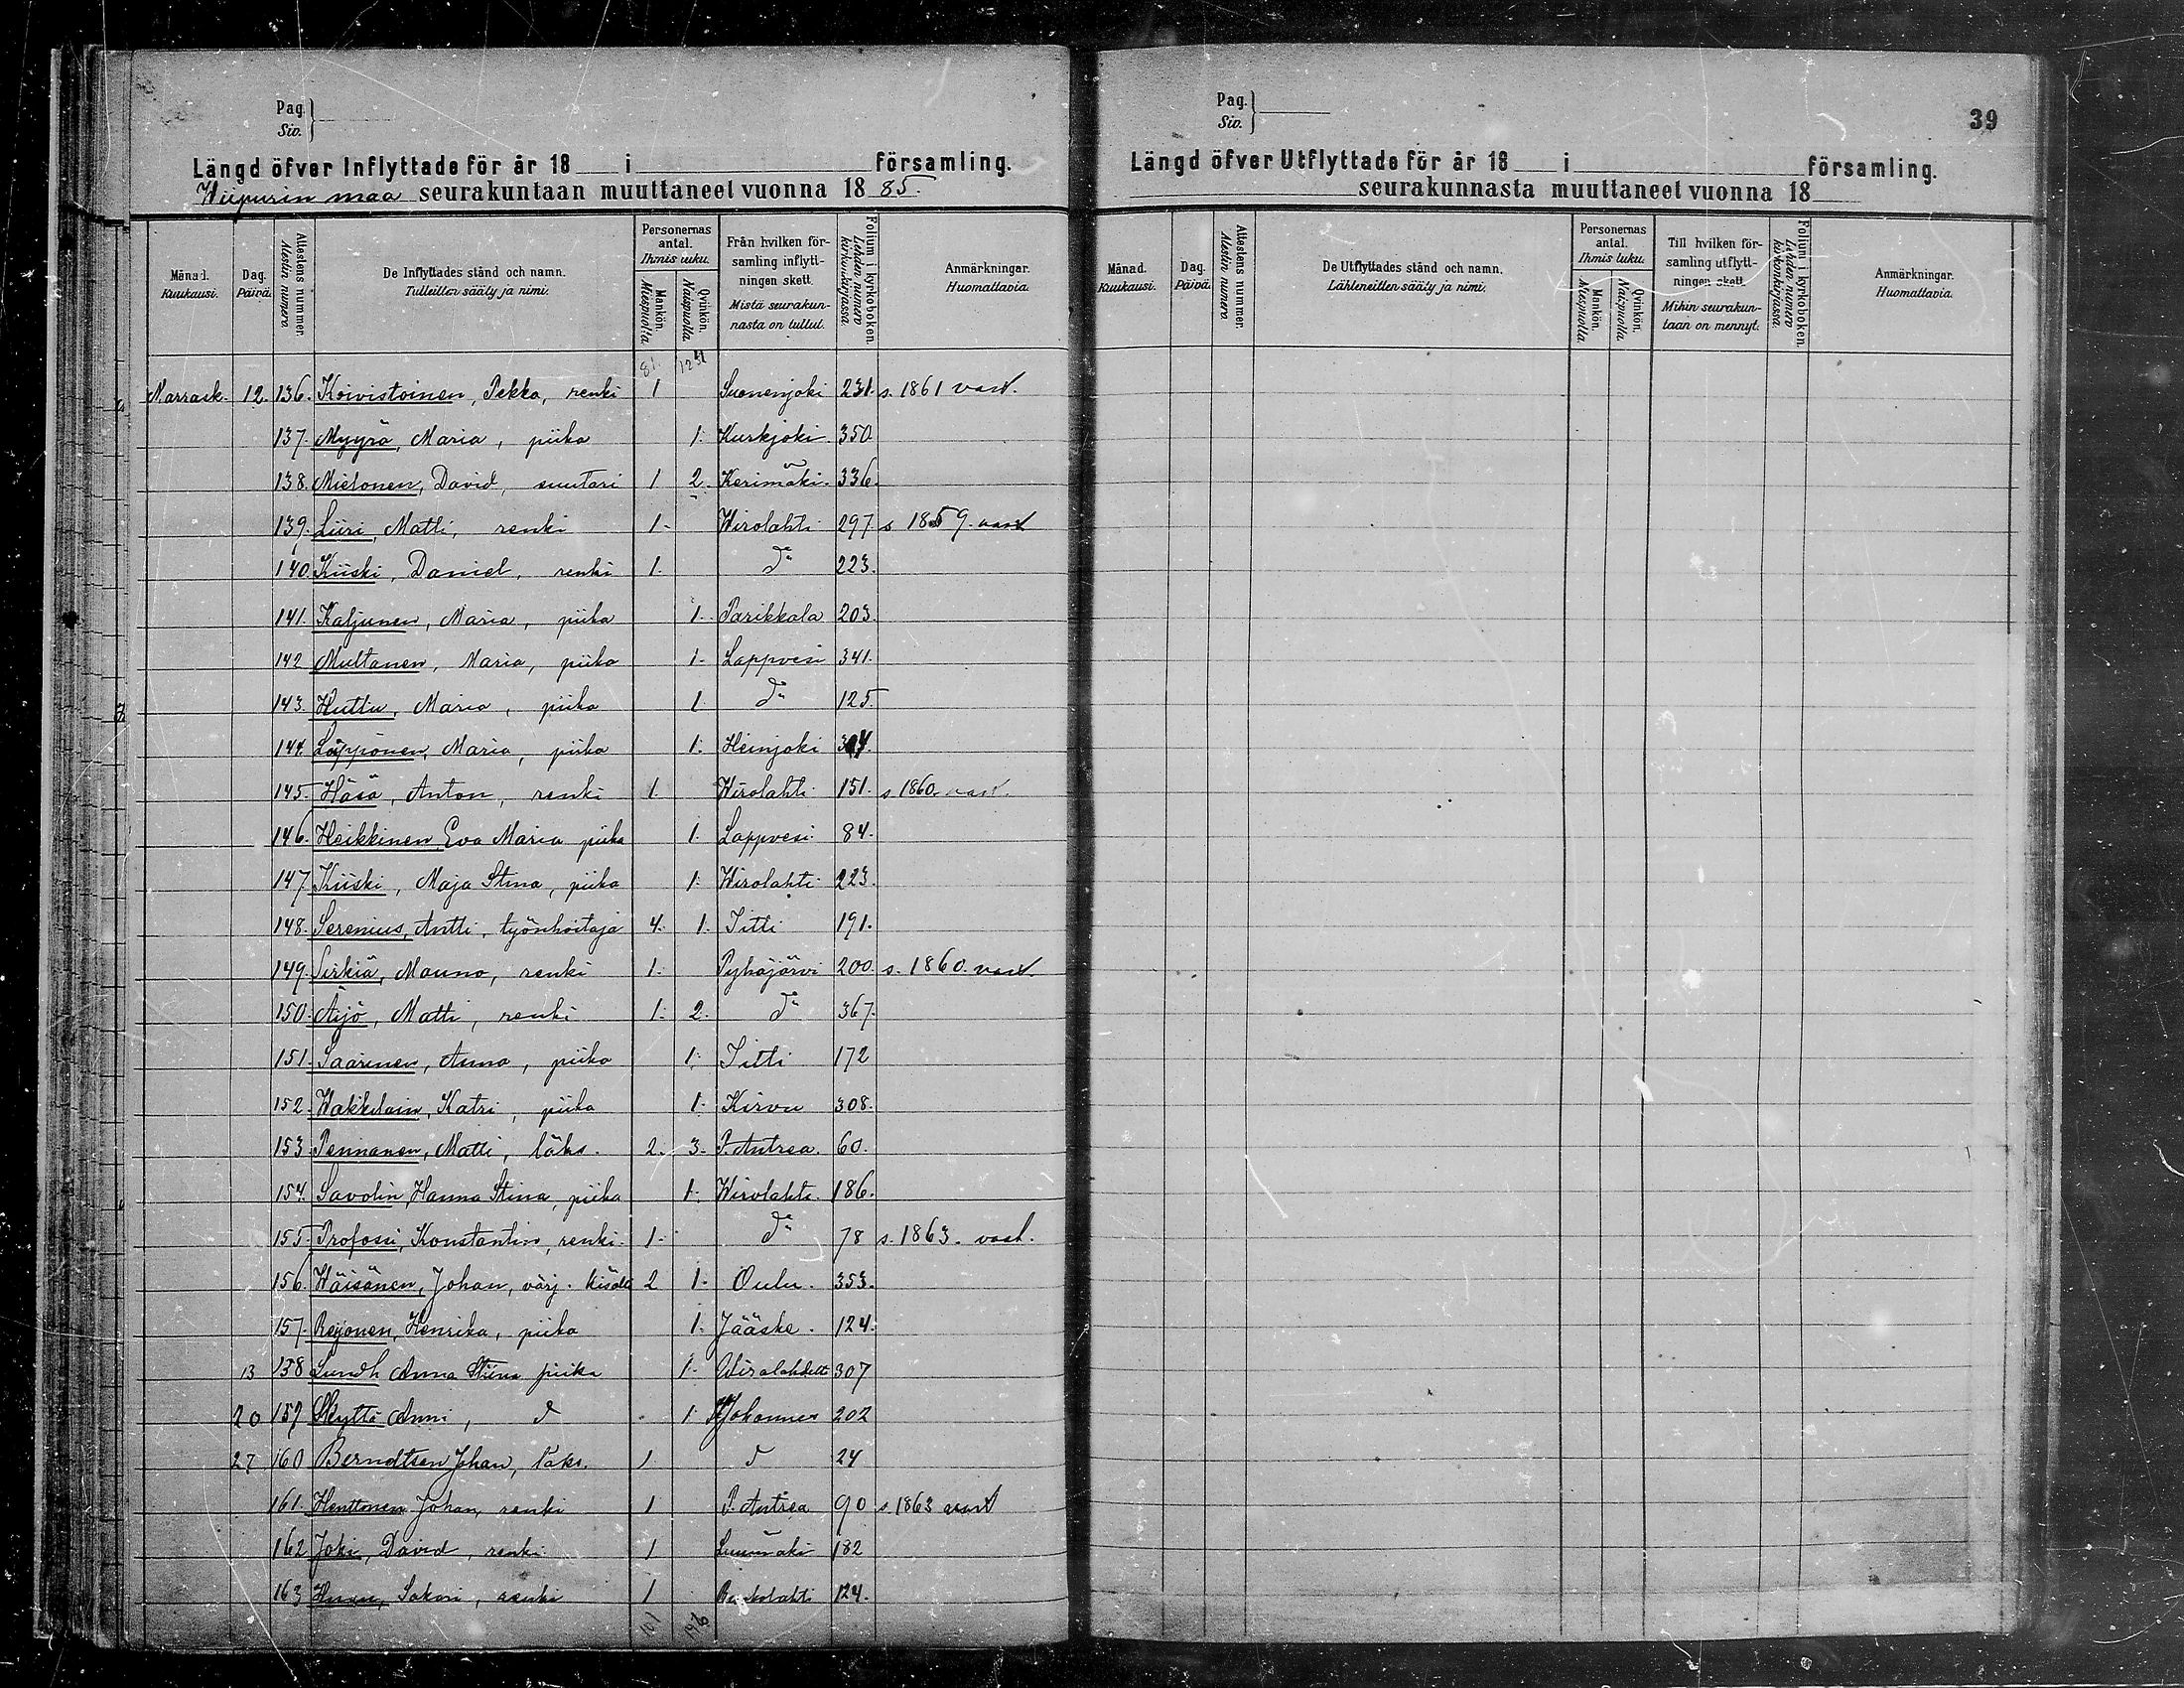 Pag.
Siv.
Längd öfver Inflyttade för år 18 i församling.
Wiipurin maa seurakuntaan muuttaneet vuonna 1885.
Månad. Kuukausi.
Dag. Päivä.
Attestens nummer. Alestin numero.
De Inflyttades stånd och namn. Tulleitten sääty ja nimi.
Personernas antal. Ihmis luku.
Mankön. Miespuolta.
Qvinkön. Naispuolta.
Från hvilken församling inflyttningen skett. Mistä seurakunnasta on tullut.
Folium i kyrkoboken. Lehden numero kirkonkirjassa.
Anmärkningar. Huomattavia.
81. 124
Marrask. 12. 136. Koivistoinen, Pekka, renki 1 Suonenjoki 231. s. 1861 vast.
137. Myyrä, Maria, piika 1. Kurkjoki 350
138. Mielonen, David, suutari 1 2. Kerimäki. 336.
139. Liiri, Matti, renki 1. Wirolahti 297. s 1859. vast
140. Kiiski, Daniel, renki 1. d:o 223.
141. Kaljunen, Maria, piika 1. Parikkala 203.
142 Multanen, Maria, piika 1. Lappvesi 341.
143. Huttu, Maria, piika 1 d:o 125.
144. Läppönen, Maria, piika 1. Heinjoki
145. Häsä, Anton, renki 1. Wirolahti 151. s 1860. vast.
146. Heikkinen Eva Maria piika 1. Lappvesi 84.
147. Kiiski, Maja Stina, piika 1. Wirolahti 223.
148. Serenius, Antti, työnhoitaja 4. 1. Iitti 191.
149. Sirkiä, Mauno, renki 1. Pyhäjärvi 200. s. 1860. vast.
150. Äijö, Matti, renki 1. 2. d:o 367.
151. Saarinen, Anna, piika 1. Iitti 172
152. Wakkilain, Katri, piika 1. Kirvu 308.
153. Pennanen, Matti, läks. 2. 3. P. Antrea. 60.
154. Savolin, Hanna Stina, piika 1. Wirolahti. 186.
155. Profossi, Konstantin, renki. 1. d:o 78 s. 1863. vast.
156. Wäisänen, Johan, värj. kisälli 2 1. Oulu. 353.
157. Reijonen, Henrika, piika 1. Jääske. 124.
13 158 Lundh Anna Stiina piika 1. Wirolahdelt 307
20 159 Skyttä Anni, d 1 Johannes 202
27 160 Berndtsen Johan, läks. 1 d 24
161. Henttonen Johan, renki 1 P. Antrea 90 s. 1863 vast
162 Joki, David, renki 1 Luumäki 182
163 Sakari, renki 1 Ruokolahti 124.
101
Pag.
Siv.
39
Längd öfver Utflyttade för år 18 i församling.
seurakunnasta muuttaneet vuonna 18
Månad. Kuukausi.
Dag. Päivä.
Attestens nummer. Alestin numero
De Utflyttades stånd och namn. Lähteneitten sääty ja nimi.
Personernas antal. Ihmis luku.
Mankön. Miespuolta
Qvinkön. Naispuolta.
Till hvilken församling utflyttningen skett. Mihin seurakuntaan on mennyt.
Folium i kyrkoboken. Lehden numero kirkonkirjassa.
Anmärkningar. Huomattavia.